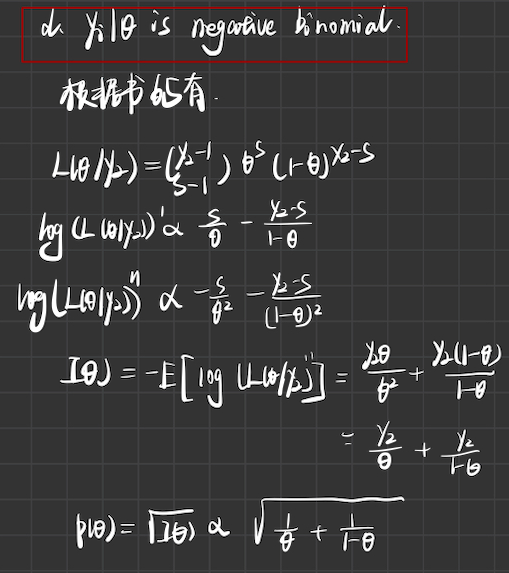 d. yi|θ is negative binomial.
根据书65有.
L(θ|y₂) = (y₂-1 s-1) θ^s (1-θ)^{y₂-s}
log(L(θ|y₂))' ∝ s/θ - (y₂-s)/(1-θ)
log(L(θ|y₂))'' ∝ -s/θ² - (y₂-s)/(1-θ)²
I(θ) = -E[log(L(θ|y₂))''] = y₂θ/θ² + y₂(1-θ)/(1-θ)
= y₂/θ + y₂/(1-θ)
p(θ) = √I(θ) ∝ √(1/θ + 1/(1-θ))